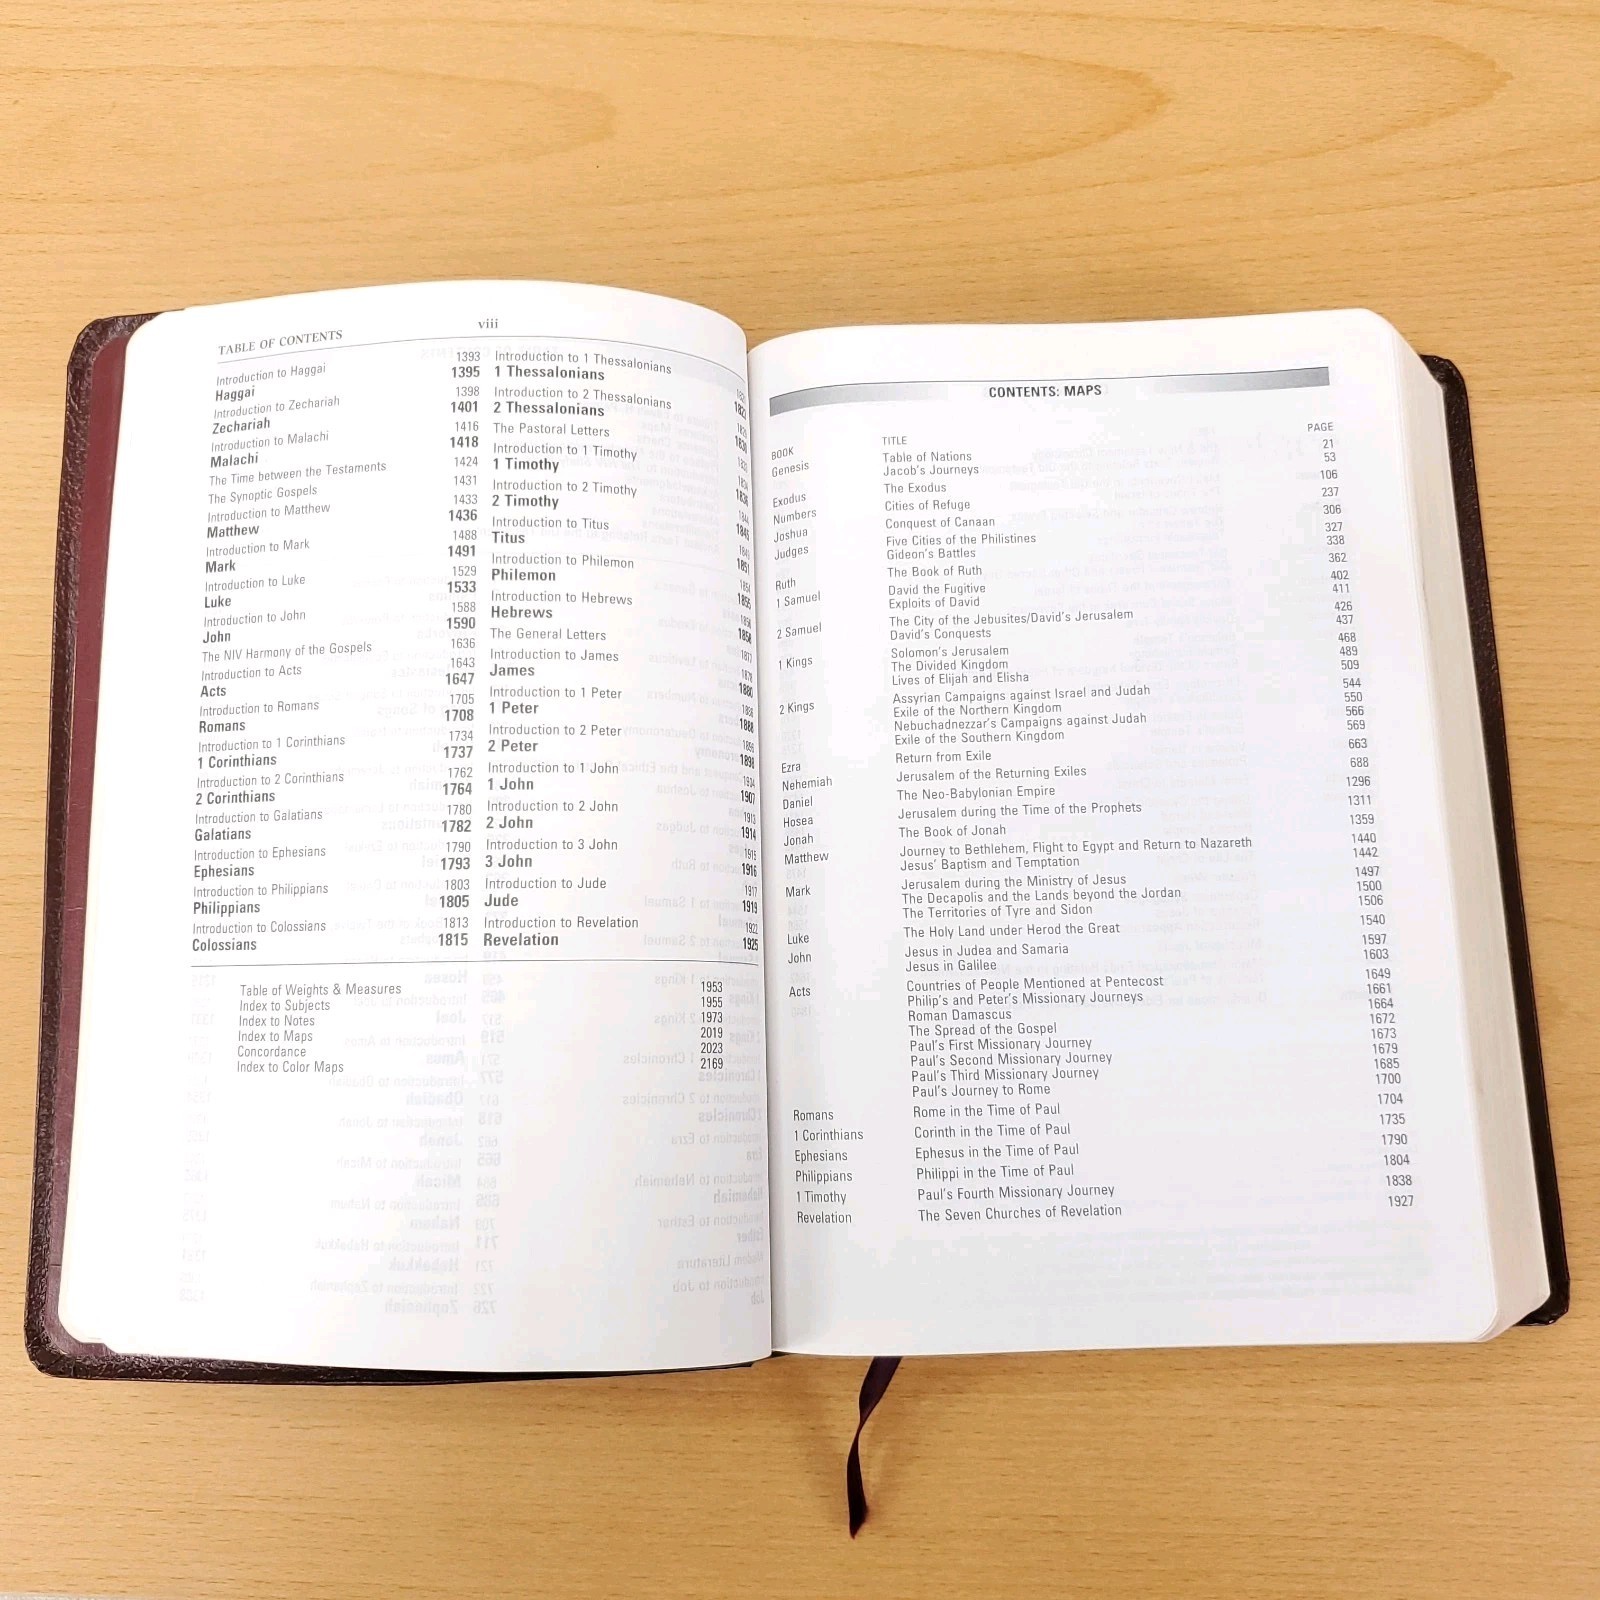 TABLE OF CONTENTS viii
Introduction to Haggai 1393
Haggai 1395
Introduction to Zechariah 1398
Zechariah 1401
Introduction to Malachi 1416
Malachi 1418
The Time between the Testaments 1424
The Synoptic Gospels 1431
Introduction to Matthew 1433
Matthew 1436
Introduction to Mark 1488
Mark 1491
Introduction to Luke 1529
Luke 1533
Introduction to John 1588
John 1590
The NIV Harmony of the Gospels 1636
Introduction to Acts 1643
Acts 1647
Introduction to Romans 1705
Romans 1708
Introduction to 1 Corinthians 1734
1 Corinthians 1737
Introduction to 2 Corinthians 1762
2 Corinthians 1764
Introduction to Galatians 1780
Galatians 1782
Introduction to Ephesians 1790
Ephesians 1793
Introduction to Philippians 1803
Philippians 1805
Introduction to Colossians 1813
Colossians 1815
Introduction to 1 Thessalonians
1 Thessalonians
Introduction to 2 Thessalonians
2 Thessalonians
The Pastoral Letters
Introduction to 1 Timothy
1 Timothy
Introduction to 2 Timothy
2 Timothy
Introduction to Titus
Titus
Introduction to Philemon
Philemon
Introduction to Hebrews
Hebrews
The General Letters
Introduction to James
James 1880
Introduction to 1 Peter
1 Peter 1888
Introduction to 2 Peter
2 Peter 1898
Introduction to 1 John
1 John 1907
Introduction to 2 John 1913
2 John 1914
Introduction to 3 John 1915
3 John 1916
Introduction to Jude 1917
Jude 1919
Introduction to Revelation 1922
Revelation 1925
Table of Weights & Measures 1953
Index to Subjects 1955
Index to Notes 1973
Index to Maps 2019
Concordance 2023
Index to Color Maps 2169
CONTENTS: MAPS
BOOK TITLE PAGE
Genesis Table of Nations 21
Jacob's Journeys 53
Exodus The Exodus 106
Numbers Cities of Refuge 237
Joshua Conquest of Canaan 306
Judges Five Cities of the Philistines 327
Gideon's Battles 338
Ruth The Book of Ruth 362
1 Samuel David the Fugitive 402
Exploits of David 411
2 Samuel The City of the Jebusites/David's Jerusalem 426
David's Conquests 437
1 Kings Solomon's Jerusalem 468
The Divided Kingdom 489
Lives of Elijah and Elisha 509
2 Kings Assyrian Campaigns against Israel and Judah 544
Exile of the Northern Kingdom 550
Nebuchadnezzar's Campaigns against Judah 566
Exile of the Southern Kingdom 569
Ezra Return from Exile 663
Nehemiah Jerusalem of the Returning Exiles 688
Daniel The Neo-Babylonian Empire 1296
Hosea Jerusalem during the Time of the Prophets 1311
Jonah The Book of Jonah 1359
Matthew Journey to Bethlehem, Flight to Egypt and Return to Nazareth 1440
Jesus' Baptism and Temptation 1442
Mark Jerusalem during the Ministry of Jesus 1497
The Decapolis and the Lands beyond the Jordan 1500
The Territories of Tyre and Sidon 1506
Luke The Holy Land under Herod the Great 1540
John Jesus in Judea and Samaria 1597
Jesus in Galilee 1603
Acts Countries of People Mentioned at Pentecost 1649
Philip's and Peter's Missionary Journeys 1661
Roman Damascus 1664
The Spread of the Gospel 1672
Paul's First Missionary Journey 1673
Paul's Second Missionary Journey 1679
Paul's Third Missionary Journey 1685
Paul's Journey to Rome 1700
Romans Rome in the Time of Paul 1704
1 Corinthians Corinth in the Time of Paul 1735
Ephesians Ephesus in the Time of Paul 1790
Philippians Philippi in the Time of Paul 1804
1 Timothy Paul's Fourth Missionary Journey 1838
Revelation The Seven Churches of Revelation 1927